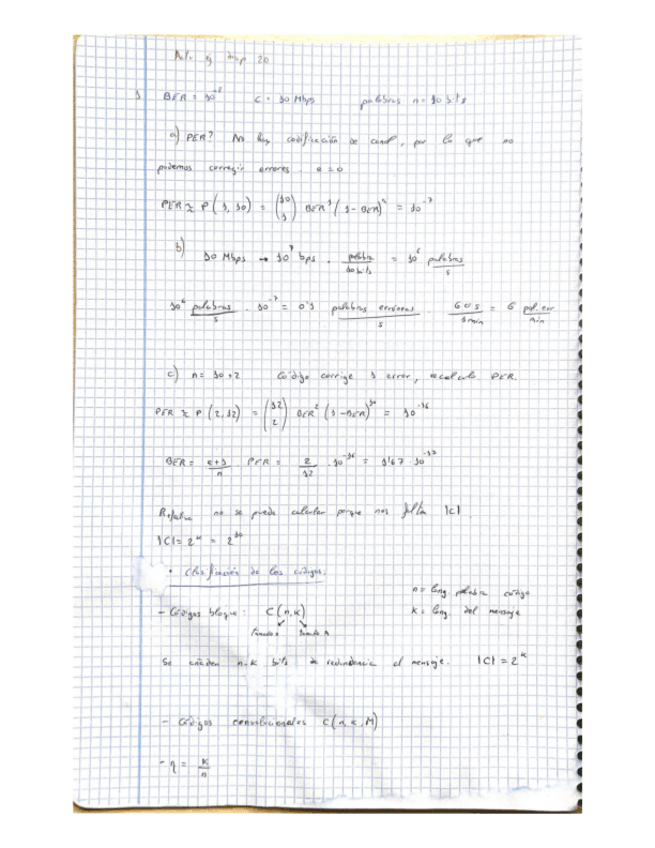 ej diap 20
1 BER = 10^-8 C = 10 Mbps palabras n = 10 bits
a) PER? No hay codificación de canal, por lo que no
podemos corregir errores. e = 0
PER ≈ P(1, 10) = (10 1) BER^1 (1-BER)^9 = 10^-7
b) 10 Mbps → 10^7 bps · palabra/10 bits = 10^6 palabras/s
10^6 palabras/s · 10^-7 = 0'1 palabras erróneas/s · 60 s/1 min = 6 pal. err/min
c) n = 10+2 Código corrige 1 error, recalcula PER.
PER ≈ P(2, 12) = (12 2) BER^2 (1-BER)^10 = 10^-16
BER = e+1/n PER = 2/12 · 10^-16 = 1'67 · 10^-17
no se puede calcular porque nos falta |C|
|C| = 2^k = 2^10
• Clasificación de los códigos.
n = long. palabra código
- Códigos bloque: C(n,k) k = long. del mensaje
Se añaden n-k bits de redundancia al mensaje. |C| = 2^k
- Códigos convolucionales C(n, k, M)
- η = k/n